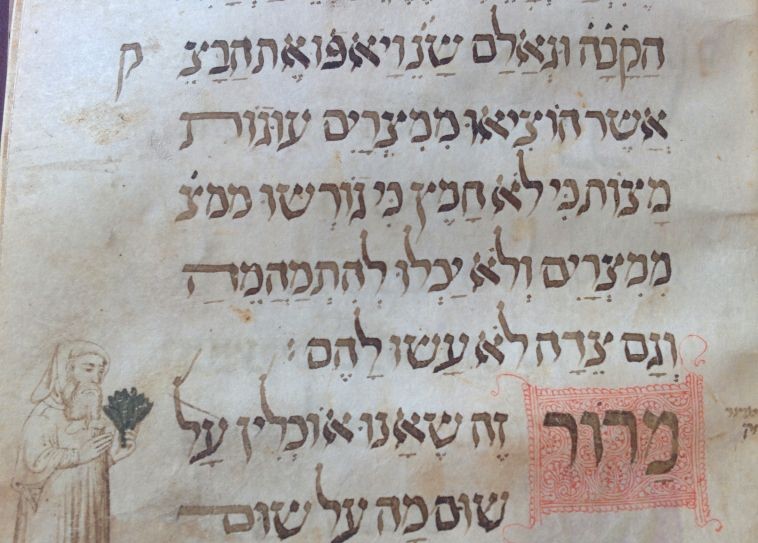 הקבה וגאלם שנ ויאפו את הבצ ק
אשר הוציאו ממצרים עוגות
מצות כי לא חמץ כי גורשו ממצ
ממצרים ולא יכלו להתמהמה
וגם צדה לא עשו להם :
מרור זה שאנו אוכלין על
שום מה על שום